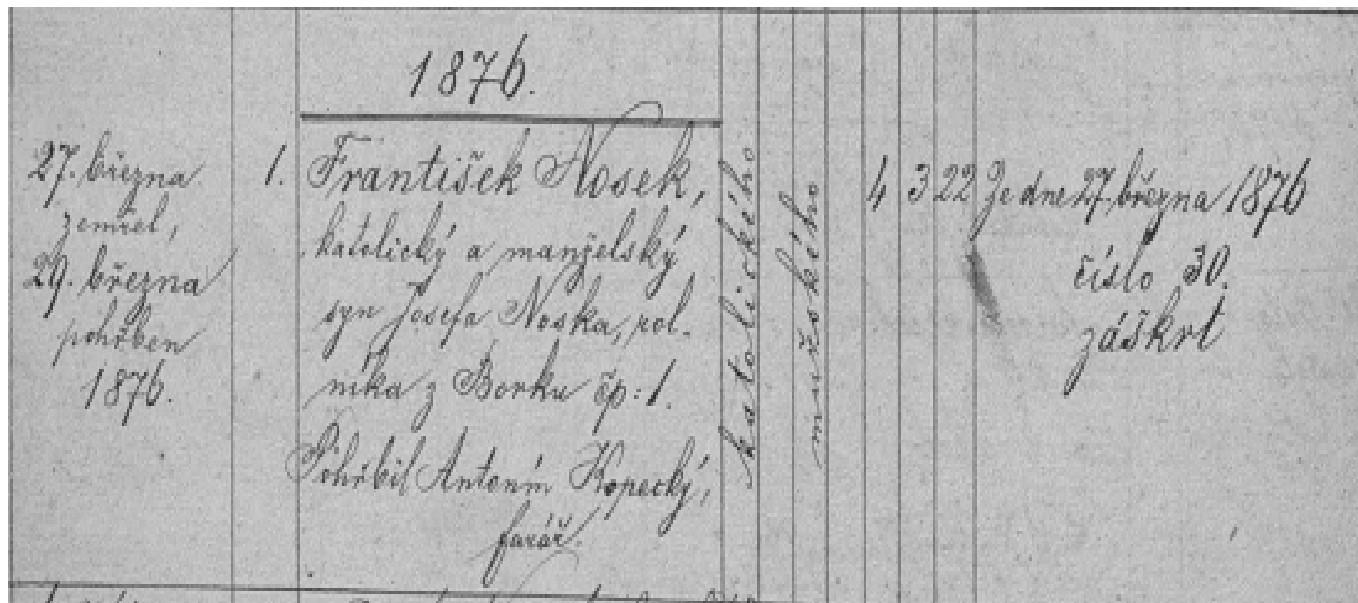 1876.
27. března
zemřel,
29. března
pohřben
1876.
1. František Nosek,
katolický a manželský
syn Josefa Noska, rol-
níka z Borku čp: 1.
Pohřbil Antonín Kopecký,
farář.
katolického
mužského
4 3 22
Ze dne 27. března 1876
číslo 30.
záškrt